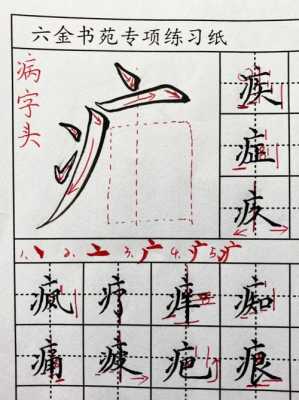 六金书苑专项练习纸
病字头
疒
症
1、丶 2、亠 3、广 4、 5、疒
疯 疗 痒 痴
痛 疲 疤 痕